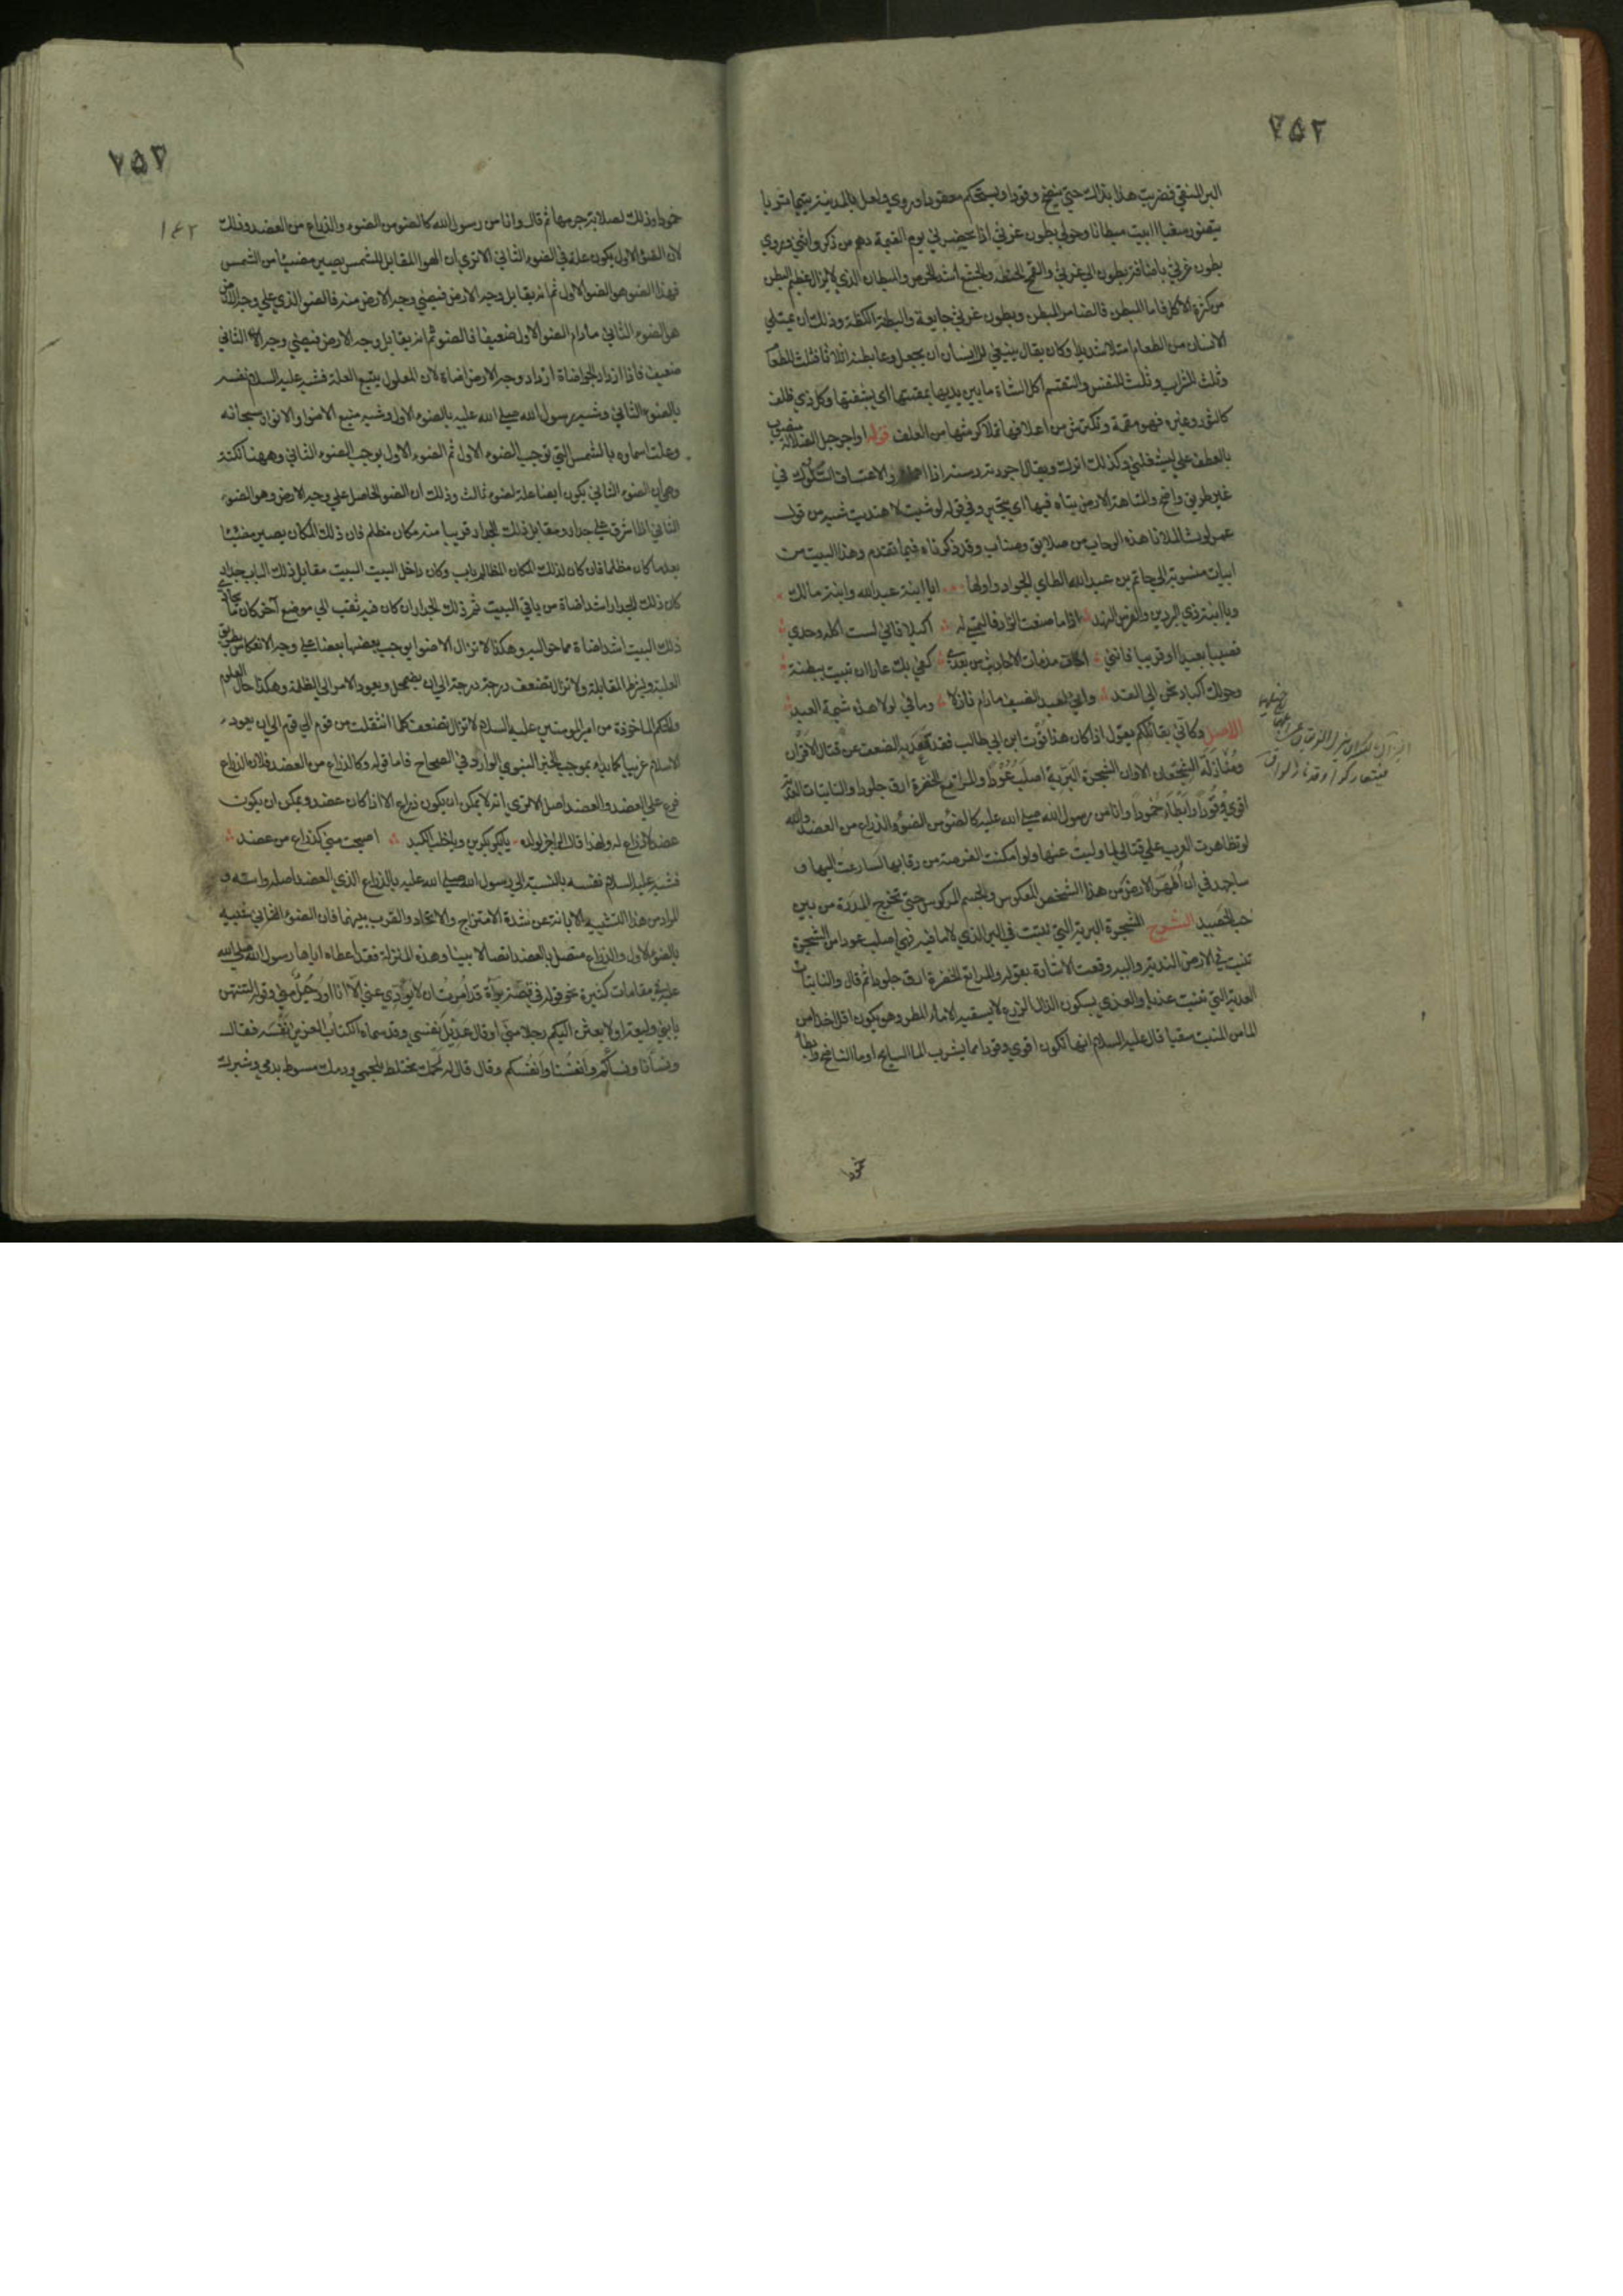 ٢٥٢
البر المنقي فضربت هذا بذلك حتي ينضج وقودا ويستحكم معقودا وروي ولعل بالمدينة يتيما تربا
يتضور سغبا ابيت مبطانا وحولي بطون غرثي اذا يحضرني يوم القيمة وهم من ذكر وانثي وروي
بطون غرثي باضافة بطون الي غرثي والقمح الحنطة والجشع اشد الحرص والمبطان الذي لا يزال عظيم البطن
من كثرة الاكل فاما المبطن فالضامر البطن وبطون غرثي جايعة والبطنة الكظة وذلك ان يمتلي
الانسان من الطعام امتلا شديدا وكان يقال ينبغي للانسان ان يجعل وعا بطنه اثلاثا فثلث للطعام
وثلث للشراب وثلث للنفس والتقمم اكل الشاة ما بين يديها بمقمتها اي بشفتها وكل ذي ظلف
كالثور وغيره فهو مقمة وتكترش من اعلافها تملا كرشها من العلف قوله او اجر حبل الضلالة منصوب
بالعطف علي يشغلني وكذلك اترك ويقال اجررته رسنه اذا اهملته والاعتساف السلوك في
غير طريق واضح والمتاهة الارض يتاه فيها اي يتحير وفي قوله لو شيت لاهتديت شبه من قول
عمر لو شئت لملانا هذه الرحاب من صلايق وصناب وقد ذكرناه فيما تقدم وهذا البيت من
ابيات منسوبة الي حاتم بن عبد الله الطاي الجواد واولها ايا ابنة عبد الله وابنة مالك
ويا ابنة ذي البردين والفرس النهد اذا ما صنعت الزاد فالتمسي له اكيلا فاني لست اكله وحدي
قصيا بعيدا او قريبا فانني اخاف مذمات الاحاديث من بعدي كفي بك عارا ان تبيت ببطنة
وحولك اكباد تحن الي القد واني لعبد الضيف ما دام نازلا وما في لولا هذه شيمة العبد
الاصل وكاني بقائلكم يقول اذا كان هذا قوت ابن ابي طالب فقد قعد به الضعف عن قتال الاقران
ومنازلة الشجعان الا وان الشجرة البرية اصلب عودا والمراتع الخضرة ارق جلودا والنابتات العذية
اقوي وقودا وابطأ خمودا وانا من رسول الله صلي الله عليه كالضوء من الضوء والذراع من العضد والله
لو تظاهرت العرب علي قتالي لما وليت عنها ولو امكنت الفرصة من رقابها لسارعت اليها و
ساجهد في ان اطهر الارض من هذا الشخص المعكوس والجسم المركوس حتي تخرج المدرة من بين
حب الحصيد الشرح الشجرة البرية التي تنبت في البر الذي لا ما فيه فهي اصلب عودا من الشجرة
تنبت في الارض الندية واليه وقعت الاشارة بقوله والمراتع الخضرة ارق جلودا ثم قال والنابتات
العذية التي تنبت عذيا والعذي بسكون الذال الزرع لا يسقيه الا ماء المطر وهو يكون اقل اخذا من
الما من المنبت سقيا قال عليه السلام انها تكون اقوي وقودا مما يشرب الما السايح او ما الناضح وابطأ
خمودا
٢٥٣
١٤٢
خمودا وذلك لصلابة جرمها ثم قال وانا من رسول الله كالضوء من الضوء والذراع من العضد وذلك
لان الضوء الاول يكون علة في الضوء الثاني الا تري ان الهوا المقابل للشمس يصير مضيئا من الشمس
فهذا الضوء هو الضوء الاول ثم انه يقابل وجه الارض فيضيي وجه الارض منه فالضوء الذي علي وجه الارض
هو الضوء الثاني ما دام الضوء الاول ضعيفا فالضوء الثاني
ضعيف فاذا ازداد الجو اضاة ازداد وجه الارض اضاة لان المعلول يتبع العلة فشبه عليه السلام نفسه
بالضوء الثاني وشبه رسول الله صلي الله عليه بالضوء الاول وشبه منبع الاضوا والانوار سبحانه
وعلت اسماوه بالشمس التي توجب الضوء الاول ثم الضوء الاول يوجب الضوء الثاني وههنا نكتة
وهي ان الضوء الثاني يكون ايضا علة لضوء ثالث وذلك ان الضوء الحاصل علي وجه الارض وهو الضوء
الثاني اذا اشرق علي جدار ومقابل ذلك الجدار قريبا منه مكان مظلم فان ذلك المكان يصير مضيئا
بعد ما كان مظلما فان كان لذلك المكان المظلم باب وكان داخل البيت مقابل ذلك الباب جدار
كان ذلك الجدار اشد اضاة من باقي البيت ثم ذلك الجدار ان كان فيه ثقب الي موضع آخر كان ما يحاذي
ذلك البيت اشد اضاة مما حواليه وهكذا لا تزال الاضوا يوجب بعضها بعضا علي وجه الانعكاس بطريق
العلية وبشرط المقابلة ولا تزال تضعف درجة درجة الي ان يضمحل ويعود الامر الي الظلمة وهكذا حال العلوم
والحكم الماخوذة من امير المومنين عليه السلام لا تزال تضعف كلما انتقلت من قوم الي قوم الي ان يعود
الاسلام غريبا كما بدا بموجب الخبر النبوي الوارد في الصحاح فاما قوله وكالذراع من العضد فلان الذراع
فرع علي العضد والعضد اصل الا تري انه لا يمكن ان يكون ذراع الا اذا كان عضد ويمكن ان يكون
عضد لا ذراع له ولهذا قال الراجز لولده يا بكر بكرين ويا خلب الكبد اصبحت مني كذراع من عضد
فشبه عليه السلام نفسه بالنسبة الي رسول الله صلي الله عليه بالذراع الذي العضد اصله واسه و
المراد من هذا التشبيه الابانة عن شدة الامتزاج والاتحاد والقرب بينهما فان الضوء الثاني شبيه
بالضوء الاول والذراع متصل بالعضد اتصالا بينا وهذه المنزلة قد اعطاه اياها رسول الله صلي الله
عليه في مقامات كثيرة نحو قوله في قصة براة قد امرت ان لا يؤدي عني الا انا او رجل مني وقوله لتنتهن
يا بني وليعة او لابعثن اليكم رجلا مني او قال عديل نفسي وقد سماه الكتاب العزيز نفسه فقال
ونسآنا ونسآكم وانفسنا وانفسكم وقال قال له لحمك مختلط بلحمي ودمك مسوط بدمي وشبرك